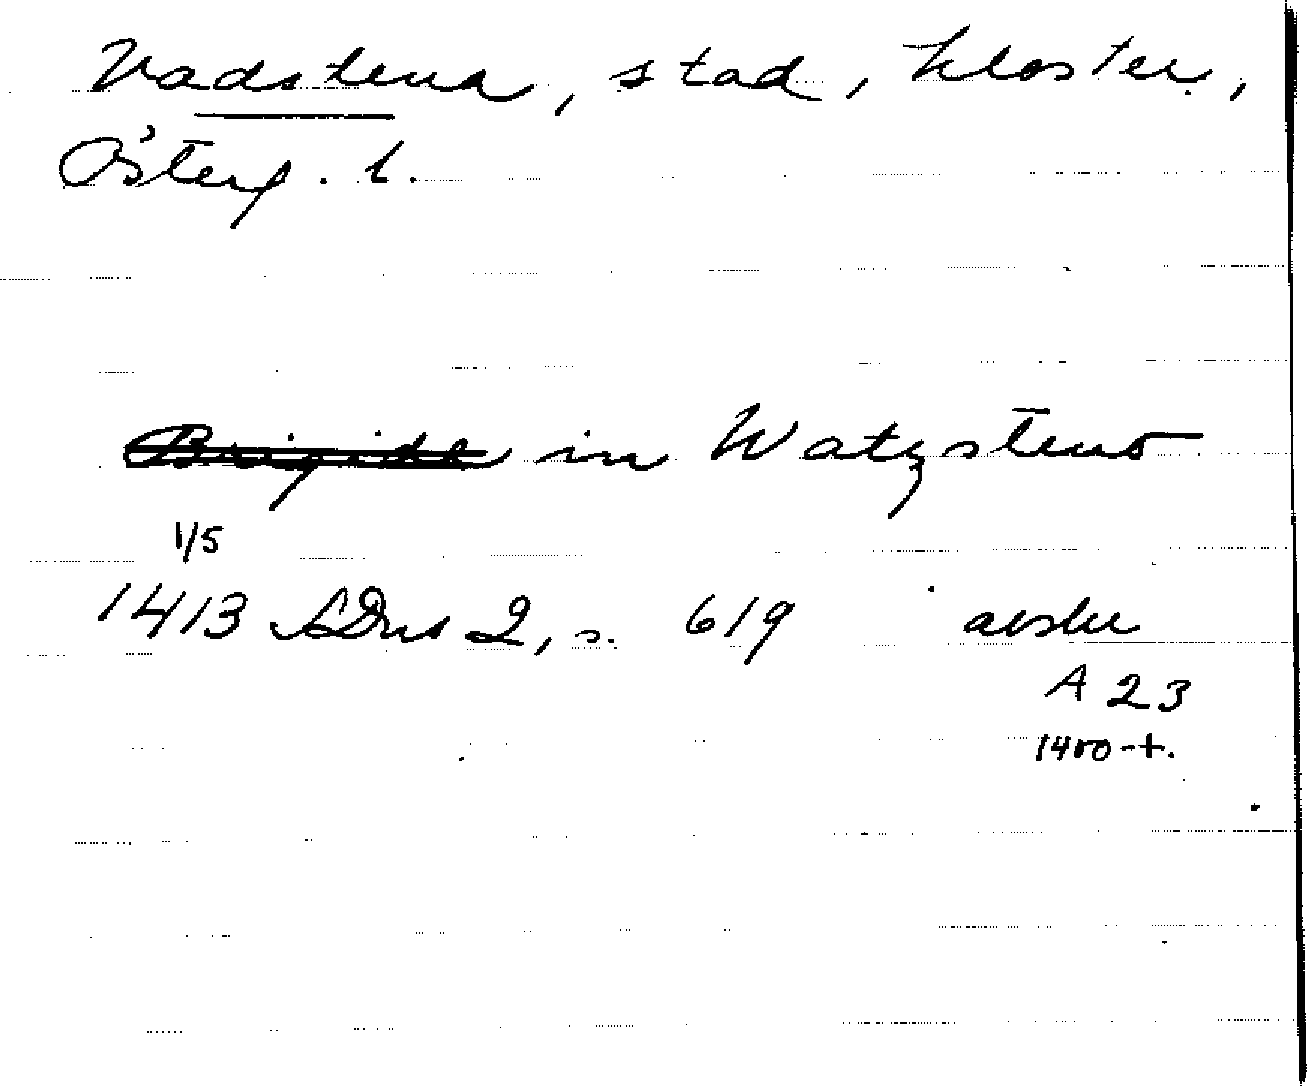 Vadstena, stad, kloster,
Österg. l.
Brigide in Watzsteno
1/5
1413 SDns 2, s. 619 avskr
A 23
1400-t.